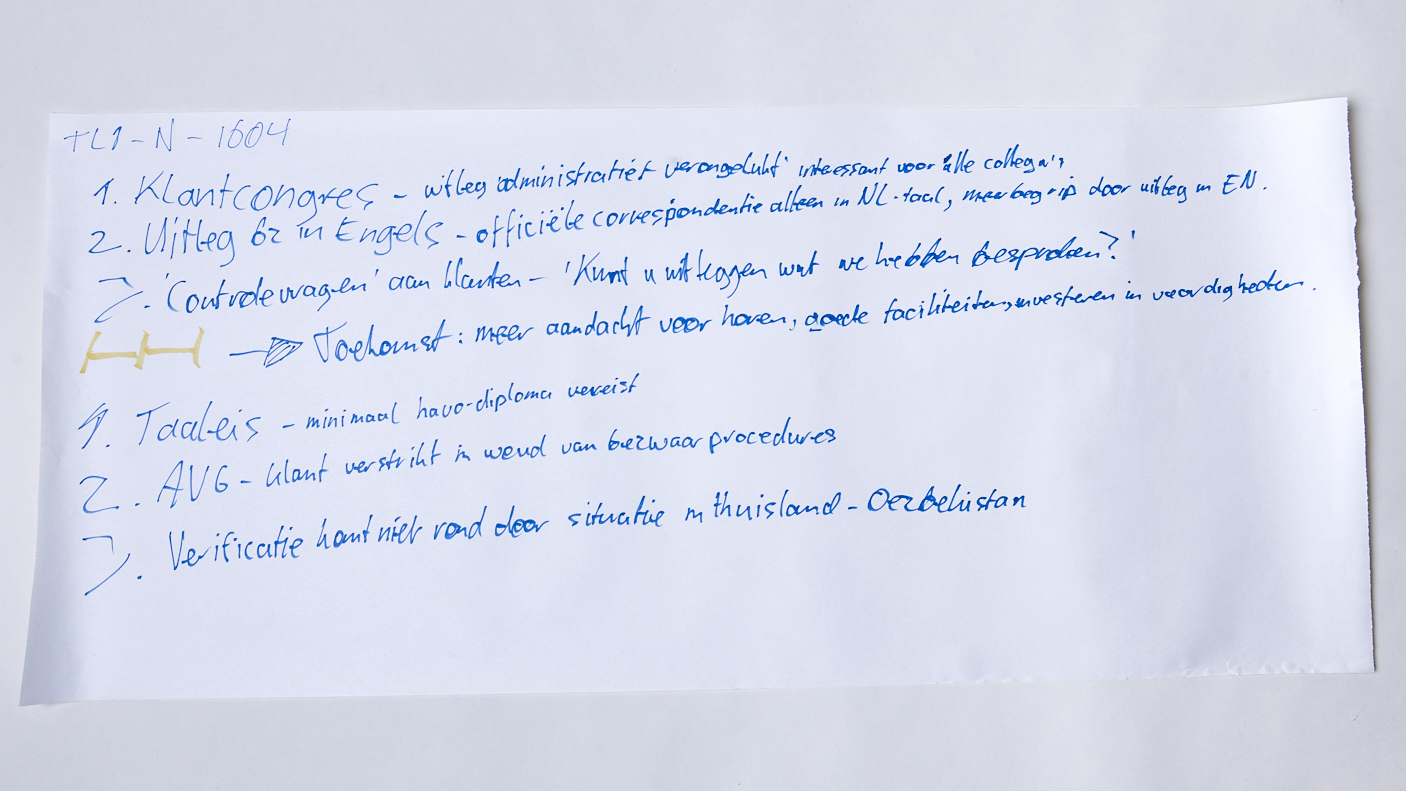 TL1-N-1604
1. Klantcongres - uitleg 'administratief verongelukt' interessant voor alle collega's
2. Uitleg bz in Engels - officiële correspondentie alleen in NL-taal, meer begrip door uitleg in EN.
3. 'Controlevragen' aan klanten - 'Kunt u uitleggen wat we hebben besproken?'
Toekomst: meer aandacht voor horen, goede faciliteiten, investeren in vaardigheden.
1. Taaleis - minimaal havo-diploma vereist
2. AVG - klant verstrikt in woud van bezwaarprocedures
3. Verificatie komt niet rond door situatie in thuisland - Oezbekistan